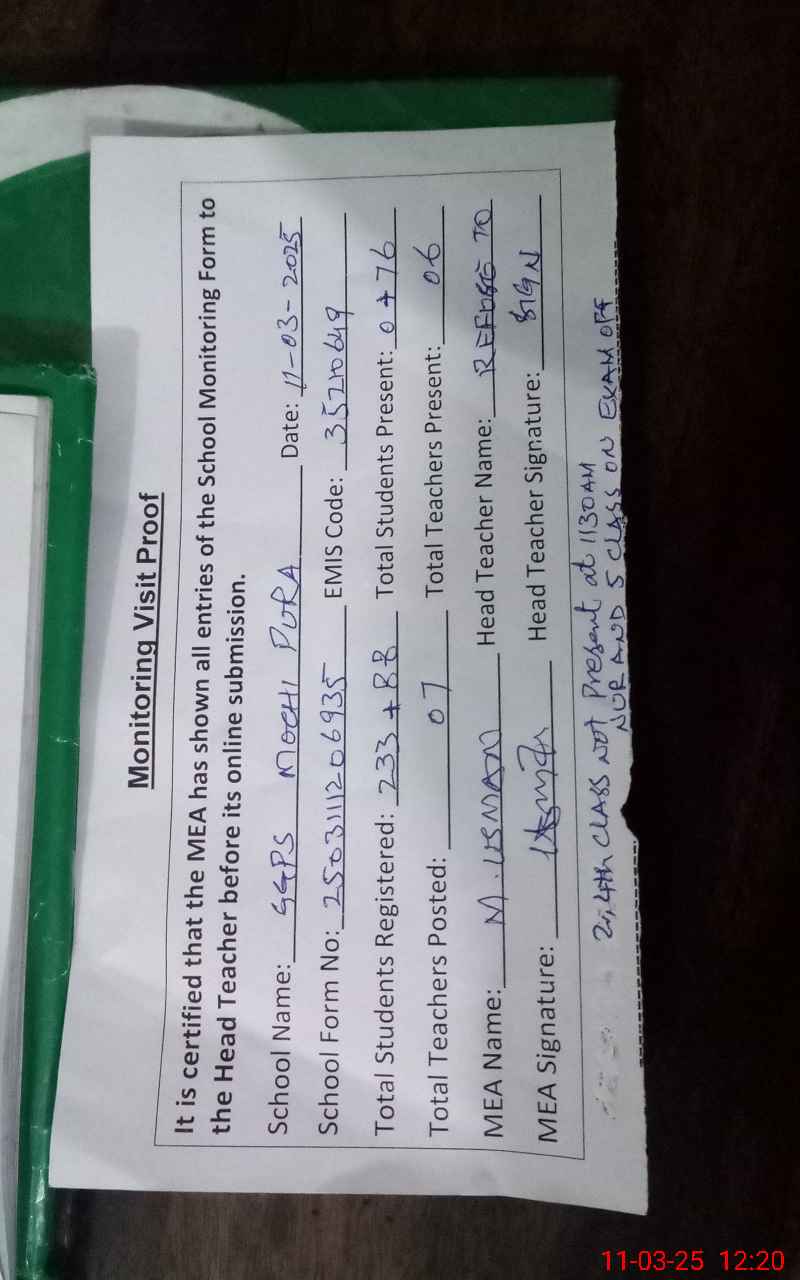 Monitoring Visit Proof
It is certified that the MEA has shown all entries of the School Monitoring Form to
the Head Teacher before its online submission.
School Name: GGPS MOCHI PURA Date: 11-03-2025
School Form No: 2503111206935 EMIS Code: 35210649
Total Students Registered: 233 + 88 Total Students Present: 0 + 76
Total Teachers Posted: 07 Total Teachers Present: 06
MEA Name: M. USMAN Head Teacher Name: REFUSE TO
MEA Signature: Head Teacher Signature: SIGN
2, 4th CLASS NOT Present at 1130AM
NUR AND 5 CLASS ON EXAM OFF
11-03-25 12:20